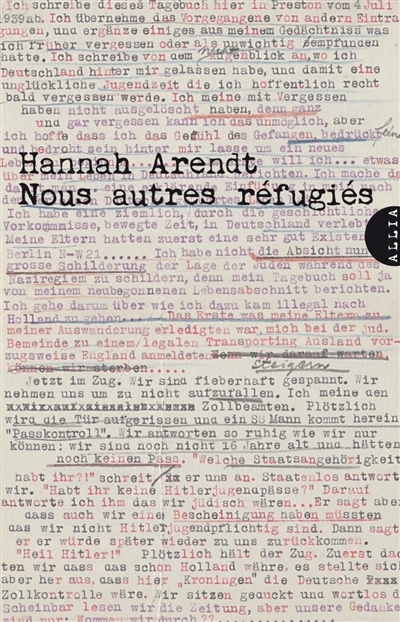 Ich schreibe dieses Tagebuch hier in Preston vom 4 Juli
1939ab. Ich übernehme das Vorgegangene von andern Eintra
gungen, und ergänze einiges aus meinem Gedächtniss was
ich früher vergessen oder als unwichtig empfunden
hatte. Ich schreibe von dem Augenblick an, wo ich
Deutschland hinter mir gelassen habe, und damit eine
unglückliche Jugendzeit die ich hoffentlich recht
bald vergessen werde. Ich meine mit Vergessen
haben nicht ausgelöscht haben, denn ganz
und gar vergessen kann ich das unmöglich, aber
ich hoffe dass ich das Gefühl des Gefangen, bedrückt
und bedroht sein hinter mir lasse um ein neues
will ich... etwas
Hannah Arendt
Nous autres réfugiés
ALLIA
Ich habe eine ziemlich, durch die geschichtliche
Vorkommnisse, bewegte Zeit, in Deutschland verlebt
Meine Eltern hatten zuerst eine sehr gut Existen
Berlin N-W21...... Ich habe nicht die Absicht nun
grosse Schilderung der Lage der Juden während des
Naziregiems zu schildern, denn mein Tagebuch soll ja
von meinem neubegonnenen Lebensabschnitt berichten.
Ich gehe darum über wie ich dazu kam illegal nach
Holland zu gehen.... Das Erste was meine Eltern zu
meiner Auswanderung erledigten war, mich bei der jüd.
Gemeinde zu einem legalen Transporting Ausland vor-
zugsweise England anmeldeten. Wenn wir darauf warten,
können wir sterben.....
steigern
Jetzt im Zug. Wir sind fieberhaft gespannt. Wir
nehmen uns um zu nicht aufzufallen. Ich meine den
Zollbeamten. Plötzlich
wird die Tür aufgerissen und ein SS Mann kommt herein
"Passkontroll". Wir antworten so ruhig wie wir nur
können: wir sind noch nicht 16 Jahre alt und hätten
noch keinen Pass. "Welche Staatsangehörigkeit
habt ihr?!" schreit er uns an. Staatenlos antwort
wir. "Habt ihr keine Hitlerjugendpässe?" Darauf
antworte ich ihm das wir jüdisch wären...Er sagt aber
dass auch wir eine Bescheinigung haben müssten
das wir nicht Hitlerjugendpflichtig sind. Dann sagt
er er würde später wieder zu uns zurückkommen.
"Heil Hitler!" Plötzlich hält der Zug. Zuerst dac
ten wir dass das schon Holland währe, es stellte sic
aber her aus, dass hier "Kroningen" die Deutsche
Zollkontrolle wäre. Wir sitzen geduckt und wortlos d
Scheinbar lesen wir die Zeitung, aber unsere Gedanke
sind nur: Kommen wir durch??